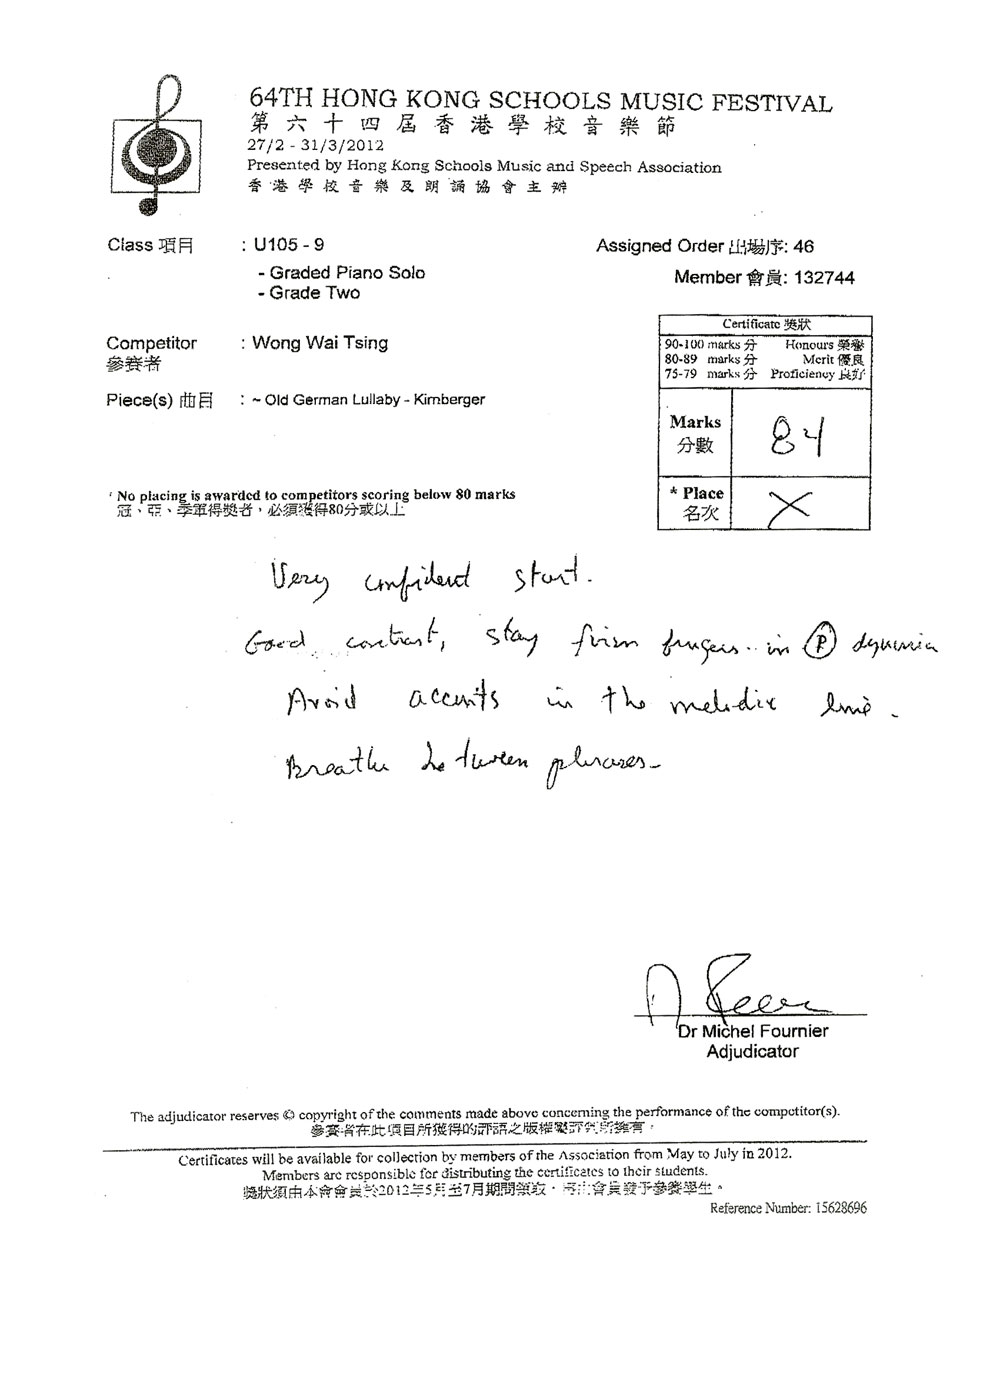 64TH HONG KONG SCHOOLS MUSIC FESTIVAL
第六十四屆香港學校音樂節
27/2 - 31/3/2012
Presented by Hong Kong Schools Music and Speech Association
香港學校音樂及朗誦協會主辦
Class 項目 : U105 - 9
Assigned Order 出場序: 46
- Graded Piano Solo
Member 會員: 132744
- Grade Two
Certificate 獎狀
90-100 marks 分 Honours 榮譽
80-89 marks 分 Merit 優良
75-79 marks 分 Proficiency 良好
Competitor : Wong Wai Tsing
參賽者
Piece(s) 曲目 : ~ Old German Lullaby - Kirnberger
Marks 84
分數
* Place X
名次
* No placing is awarded to competitors scoring below 80 marks
冠、亞、季軍得獎者，必須獲得80分或以上
Very confident start.
Good contrast, stay firm fingers in P dynamic
Avoid accents in the melodic line.
Breathe between phrases.
Dr Michel Fournier
Adjudicator
The adjudicator reserves © copyright of the comments made above concerning the performance of the competitor(s).
參賽者在此項目所獲得的評語之版權屬評判所擁有。
Certificates will be available for collection by members of the Association from May to July in 2012.
Members are responsible for distributing the certificates to their students.
獎狀須由本會會員於2012年5月至7月期間領取，再由會員發予參賽學生。
Reference Number: 15628696